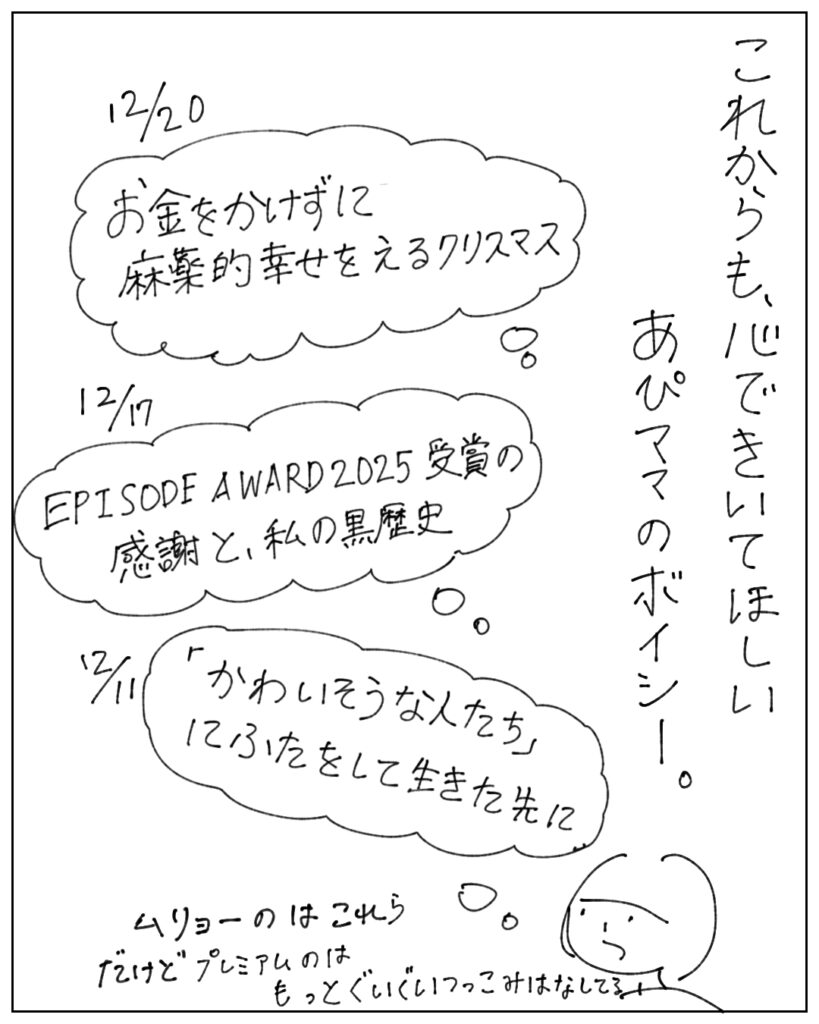 これからも、心できいてほしい
あぴママのボイシー。
12/20
お金をかけずに
麻薬的幸せをえるクリスマス
12/17
EPISODE AWARD2025受賞の
感謝と、私の黒歴史
12/11
「かわいそうな人たち」
にふたをして生きた先に
ムリョーのはこれら
だけどプレミアムのは
もっとぐいぐいつっこみはなしてる!